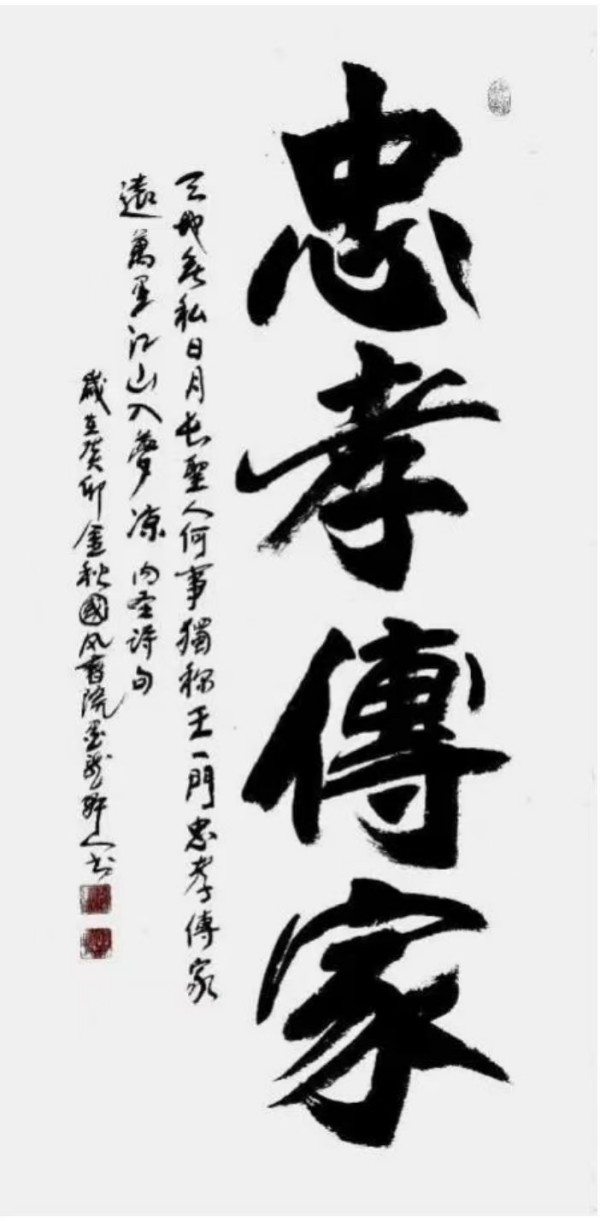 忠孝傳家
天地無私日月長聖人何事獨称王一門忠孝傳家
遠萬里江山入夢涼内圣诗句
歲在癸卯金秋國风書院墨龍軒人书